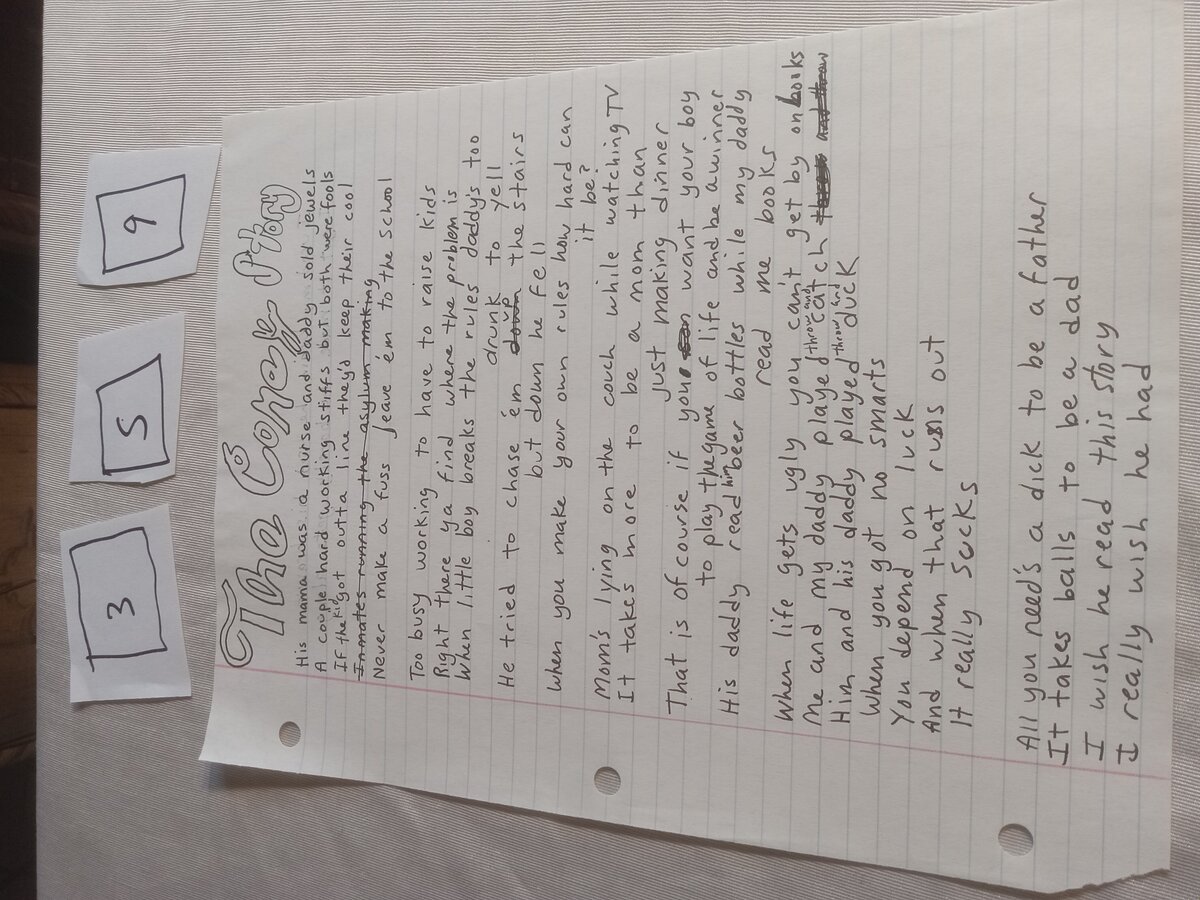 3
5
9
The Coney Story
His mama was a nurse and daddy sold jewels
A couple hard working stiffs but both were fools
If the kid got outta line they'd keep their cool
Inmates running the asylum making
Never make a fuss leave ém to the school
Too busy working to have to raise kids
Right there ya find where the problem is
When little boy breaks the rules daddy's too
drunk to yell
He tried to chase ém down up the stairs
but down he fell
When you make your own rules how hard can
it be?
Mom's lying on the couch while watching TV
It takes more to be a mom than
just making dinner
That is of course if you want your boy
to play the game of life and be a winner
His daddy read him beer bottles while my daddy
read me books
When life gets ugly you can't get by on looks
Me and my daddy played throw and catch
Him and his daddy played throw and duck
When you got no smarts
You depend on luck
And when that runs out
It really sucks
All you need's a dick to be a father
It takes balls to be a dad
I wish he read this story
I really wish he had